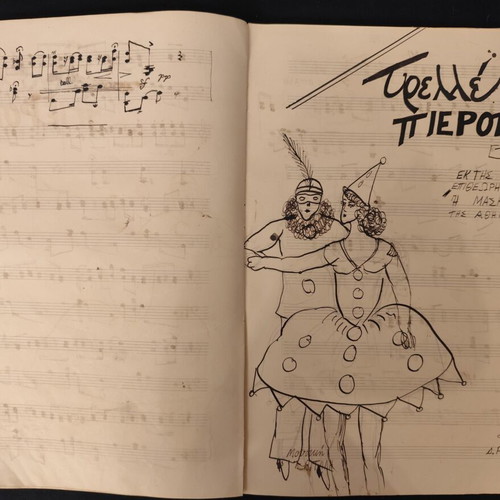 Τρελλέ
ΠΙΕΡΟΤ
ΕΚ ΤΗΣ
ΕΠΙΘΕΩΡΗ
Η ΜΑΣΚ
ΤΗΣ ΑΘΗ
pp